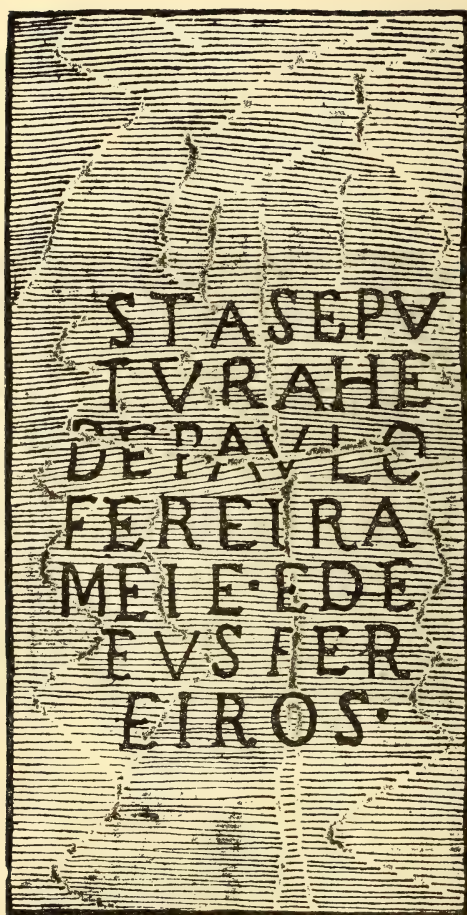 STASEPV
TVRAHE
DEPAVLO
FEREIRA
MEIE·EDE
EVS FER
EIROS·